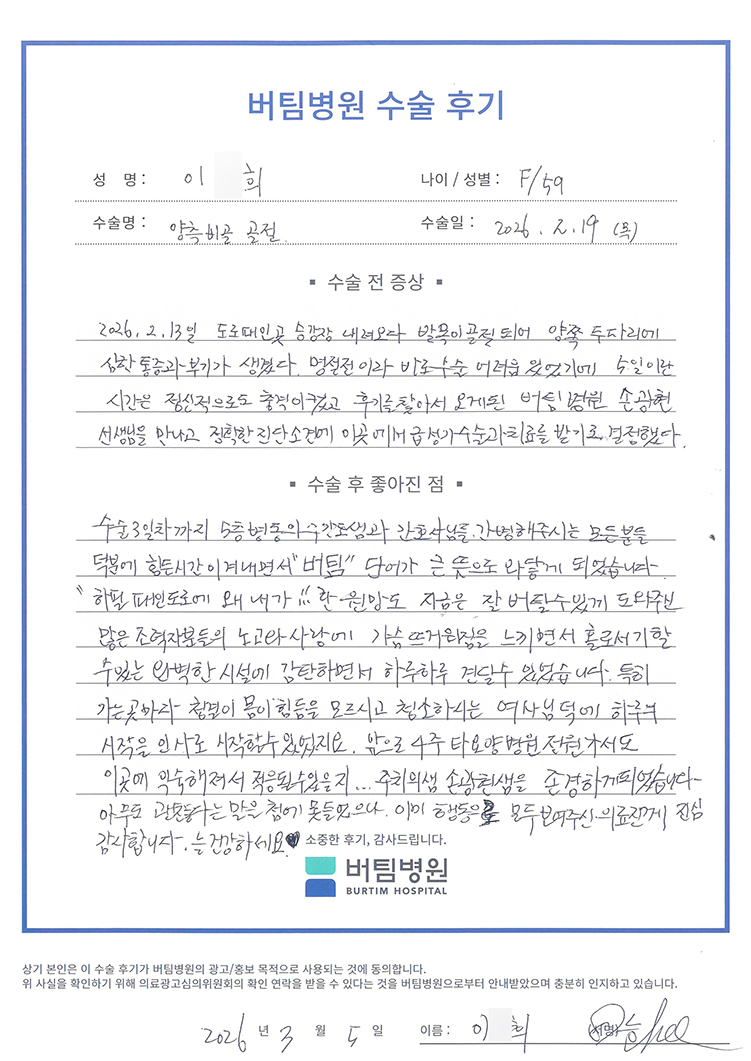 버팀병원 수술 후기
성 명 : 이 희
나이 / 성별 : F/59
수술명 : 양측 비골 골절
수술일 : 2026. 2. 19 (목)
▪ 수술 전 증상 ▪
2026. 2. 13일 도로때인곳 승강장 내려오다 발목이골절되어 양쪽 두다리에
심한 통증과 부기가 생겼다. 명절전이라 바로수술 어려움 있었기에 5일이란
시간은 정신적으로도 충격이컸고 후기를찾아서 오게된 버팀병원 손광현
선생님을 만나고 정확한 진단소견에 이곳에서 급성기수술과치료를 받기로 결정했다.
▪ 수술 후 좋아진 점 ▪
수술3일차까지 5층병동의 수간호샘과 간호사님들 간병해주시는 모든분들
덕분에 힘든시간이겨내면서 "버팀" 단어가 큰 뜻으로 와닿게 되었습니다.
"하필 때인도로에 왜 내가 !!! 한 원망도 지금은 잘 버틸수있게 도와주신
많은 조력자분들의 노고와사랑에 가슴뜨거워짐을 느끼면서 홀로서기할
수있는 완벽한 시설에 감탄하면서 하루하루 견딜수 있었습니다. 특히
가는곳마다 청결이 몸이힘듬을 모르시고 청소하시는 여사님덕에 하루의
시작을 인사로 시작할수있었지요. 앞으로 4주 타요양병원전원가서도
이곳에 익숙해져서 적응될수있을지... 주치의샘 손광현샘을 존경하게되었습니다
아무도 못들었으나. 이미 행동으로 모두보여주신 의료진께 진심
감사합니다. 늘건강하세요♥
소중한 후기, 감사드립니다.
버팀병원
BURTIM HOSPITAL
상기 본인은 이 수술 후기가 버팀병원의 광고/홍보 목적으로 사용되는 것에 동의합니다.
위 사실을 확인하기 위해 의료광고심의위원회의 확인 연락을 받을 수 있다는 것을 버팀병원으로부터 안내받았으며 충분히 인지하고 있습니다.
2026 년 3 월 5 일 이름 : 이 희 (서명)